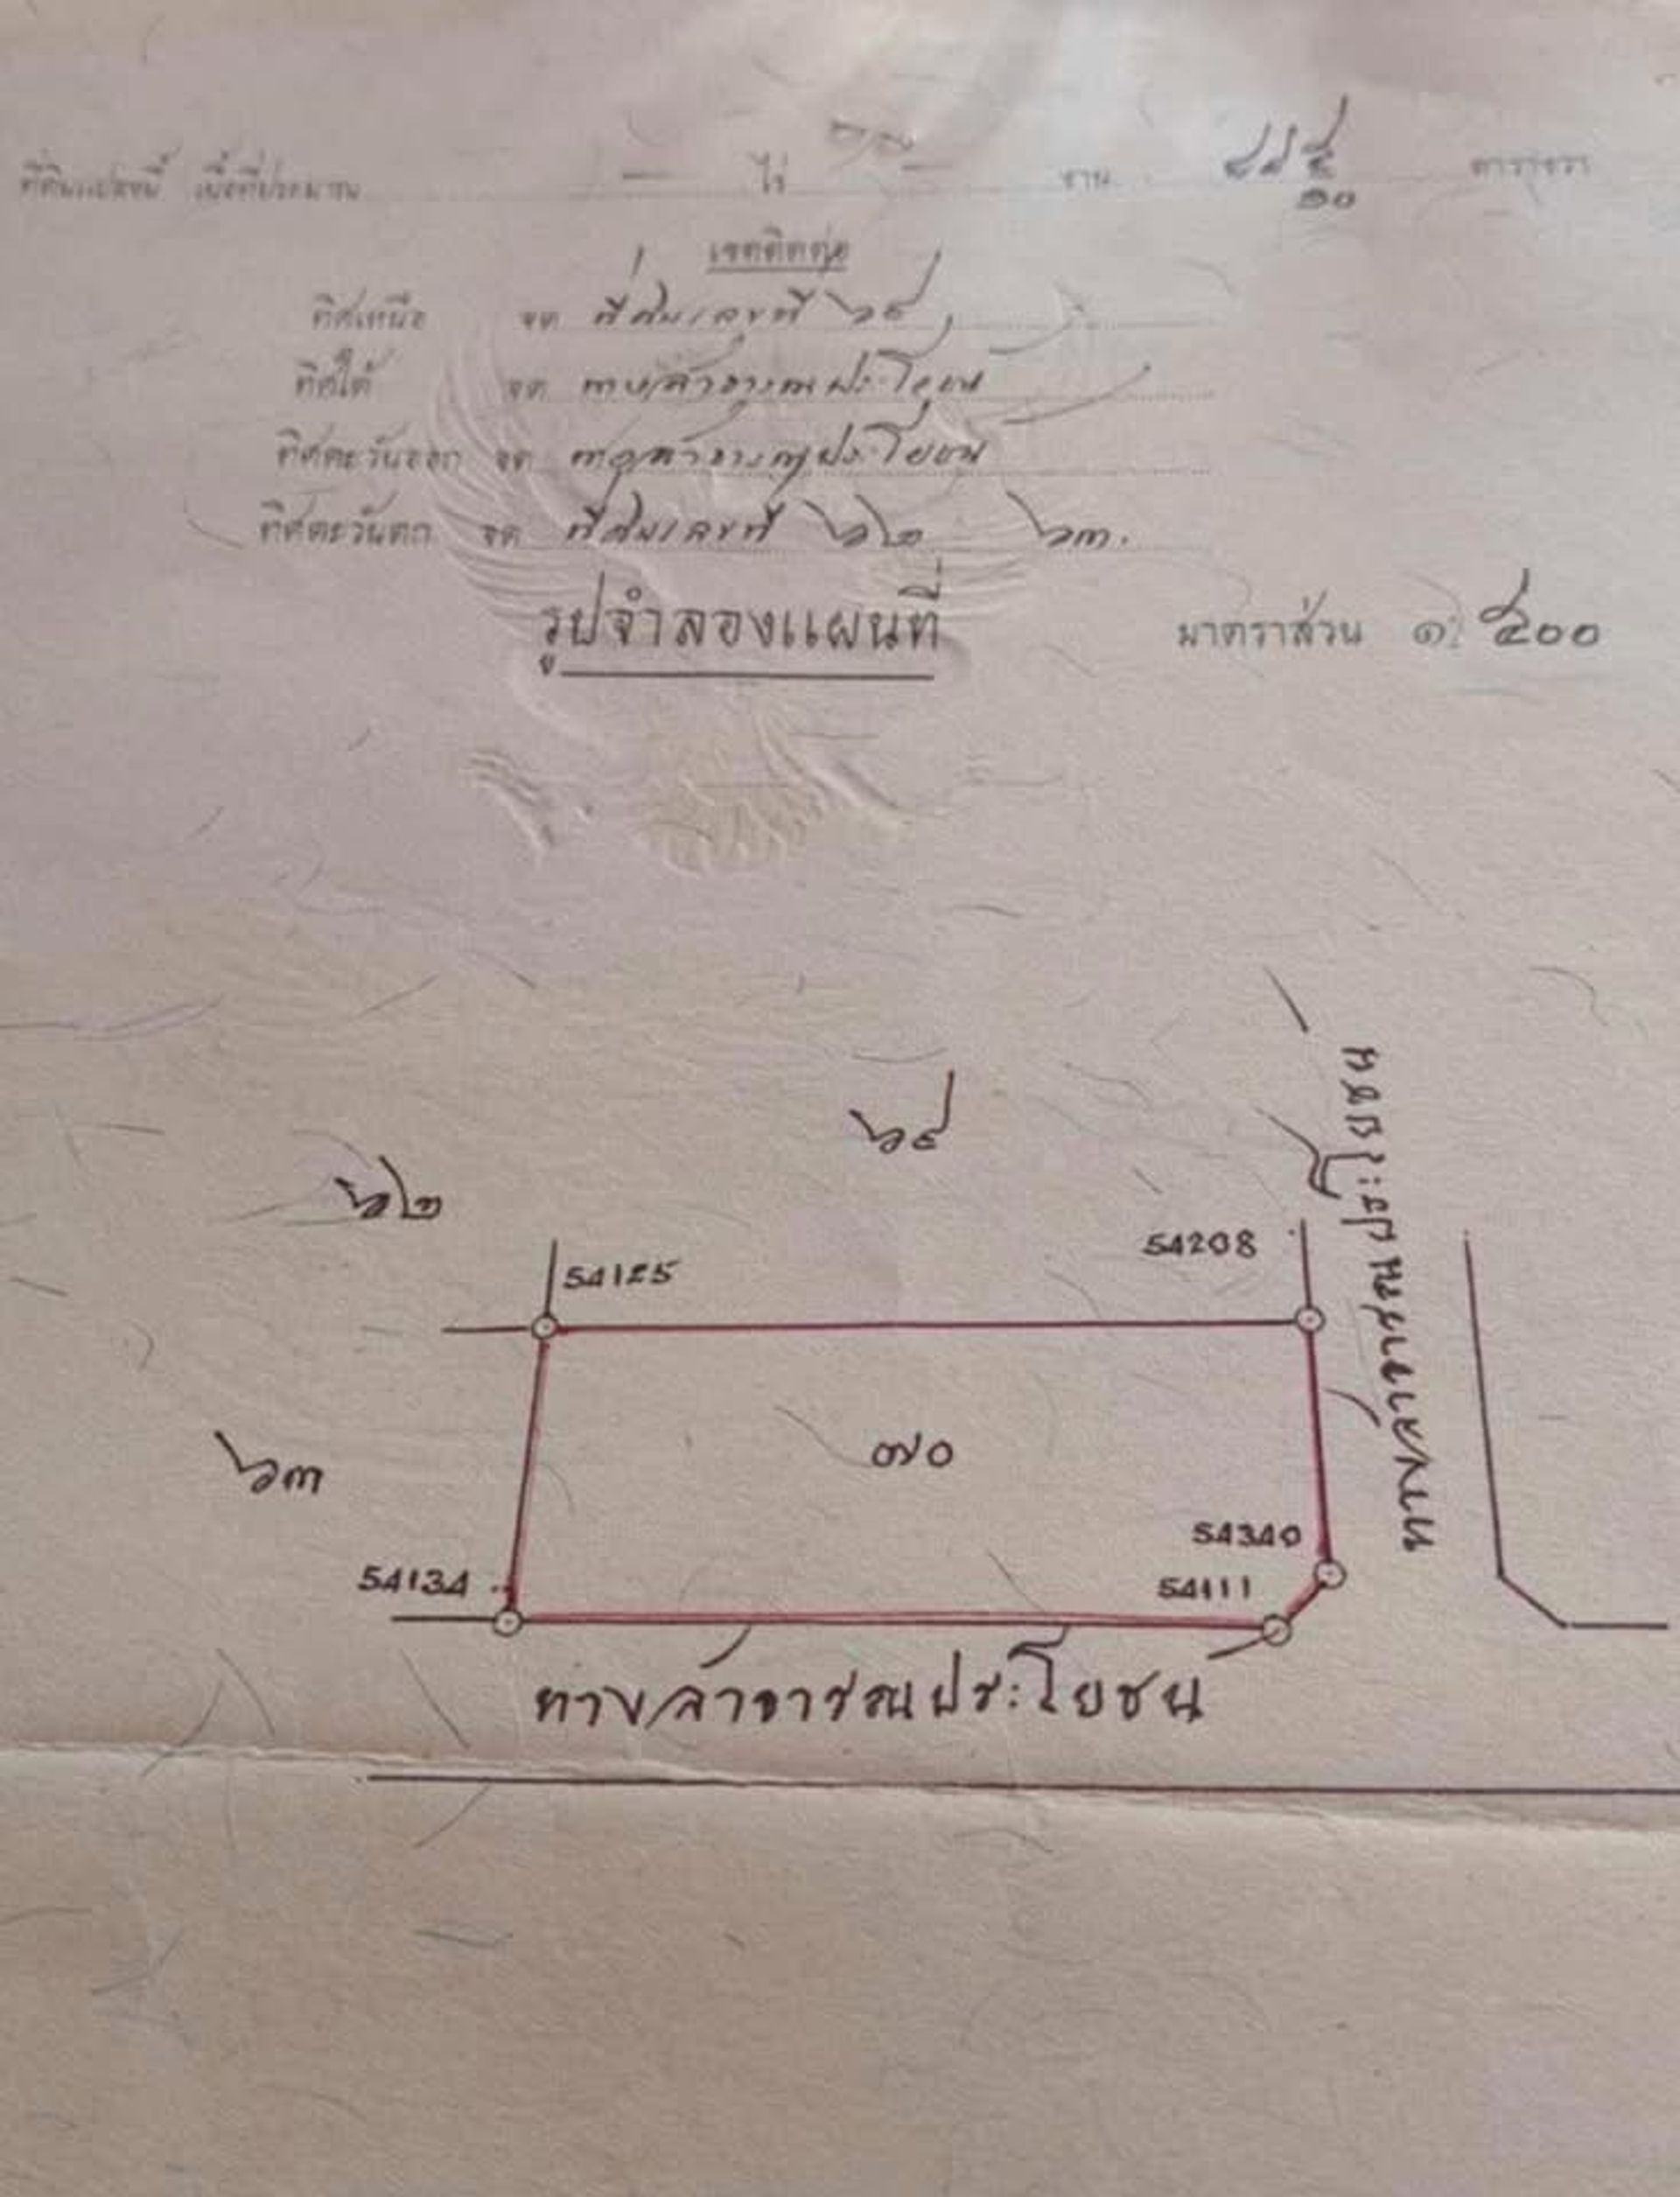 ที่ดินแปลงนี้ เนื้อที่ประมาณ — ไร่ — งาน ตารางวา
เขตติดต่อ
ทิศเหนือ จด ที่ดินเลขที่ ๖๙
ทิศใต้ จด ทางสาธารณประโยชน์
ทิศตะวันออก จด ทางสาธารณประโยชน์
ทิศตะวันตก จด ที่ดินเลขที่ ๖๒ ๖๓.
รูปจำลองแผนที่ มาตราส่วน ๑: ๕๐๐
๖๙
๖๒
54125
54208
ทางสาธารณประโยชน์
๗๐
๖๓
54340
54134
54111
ทางสาธารณประโยชน์